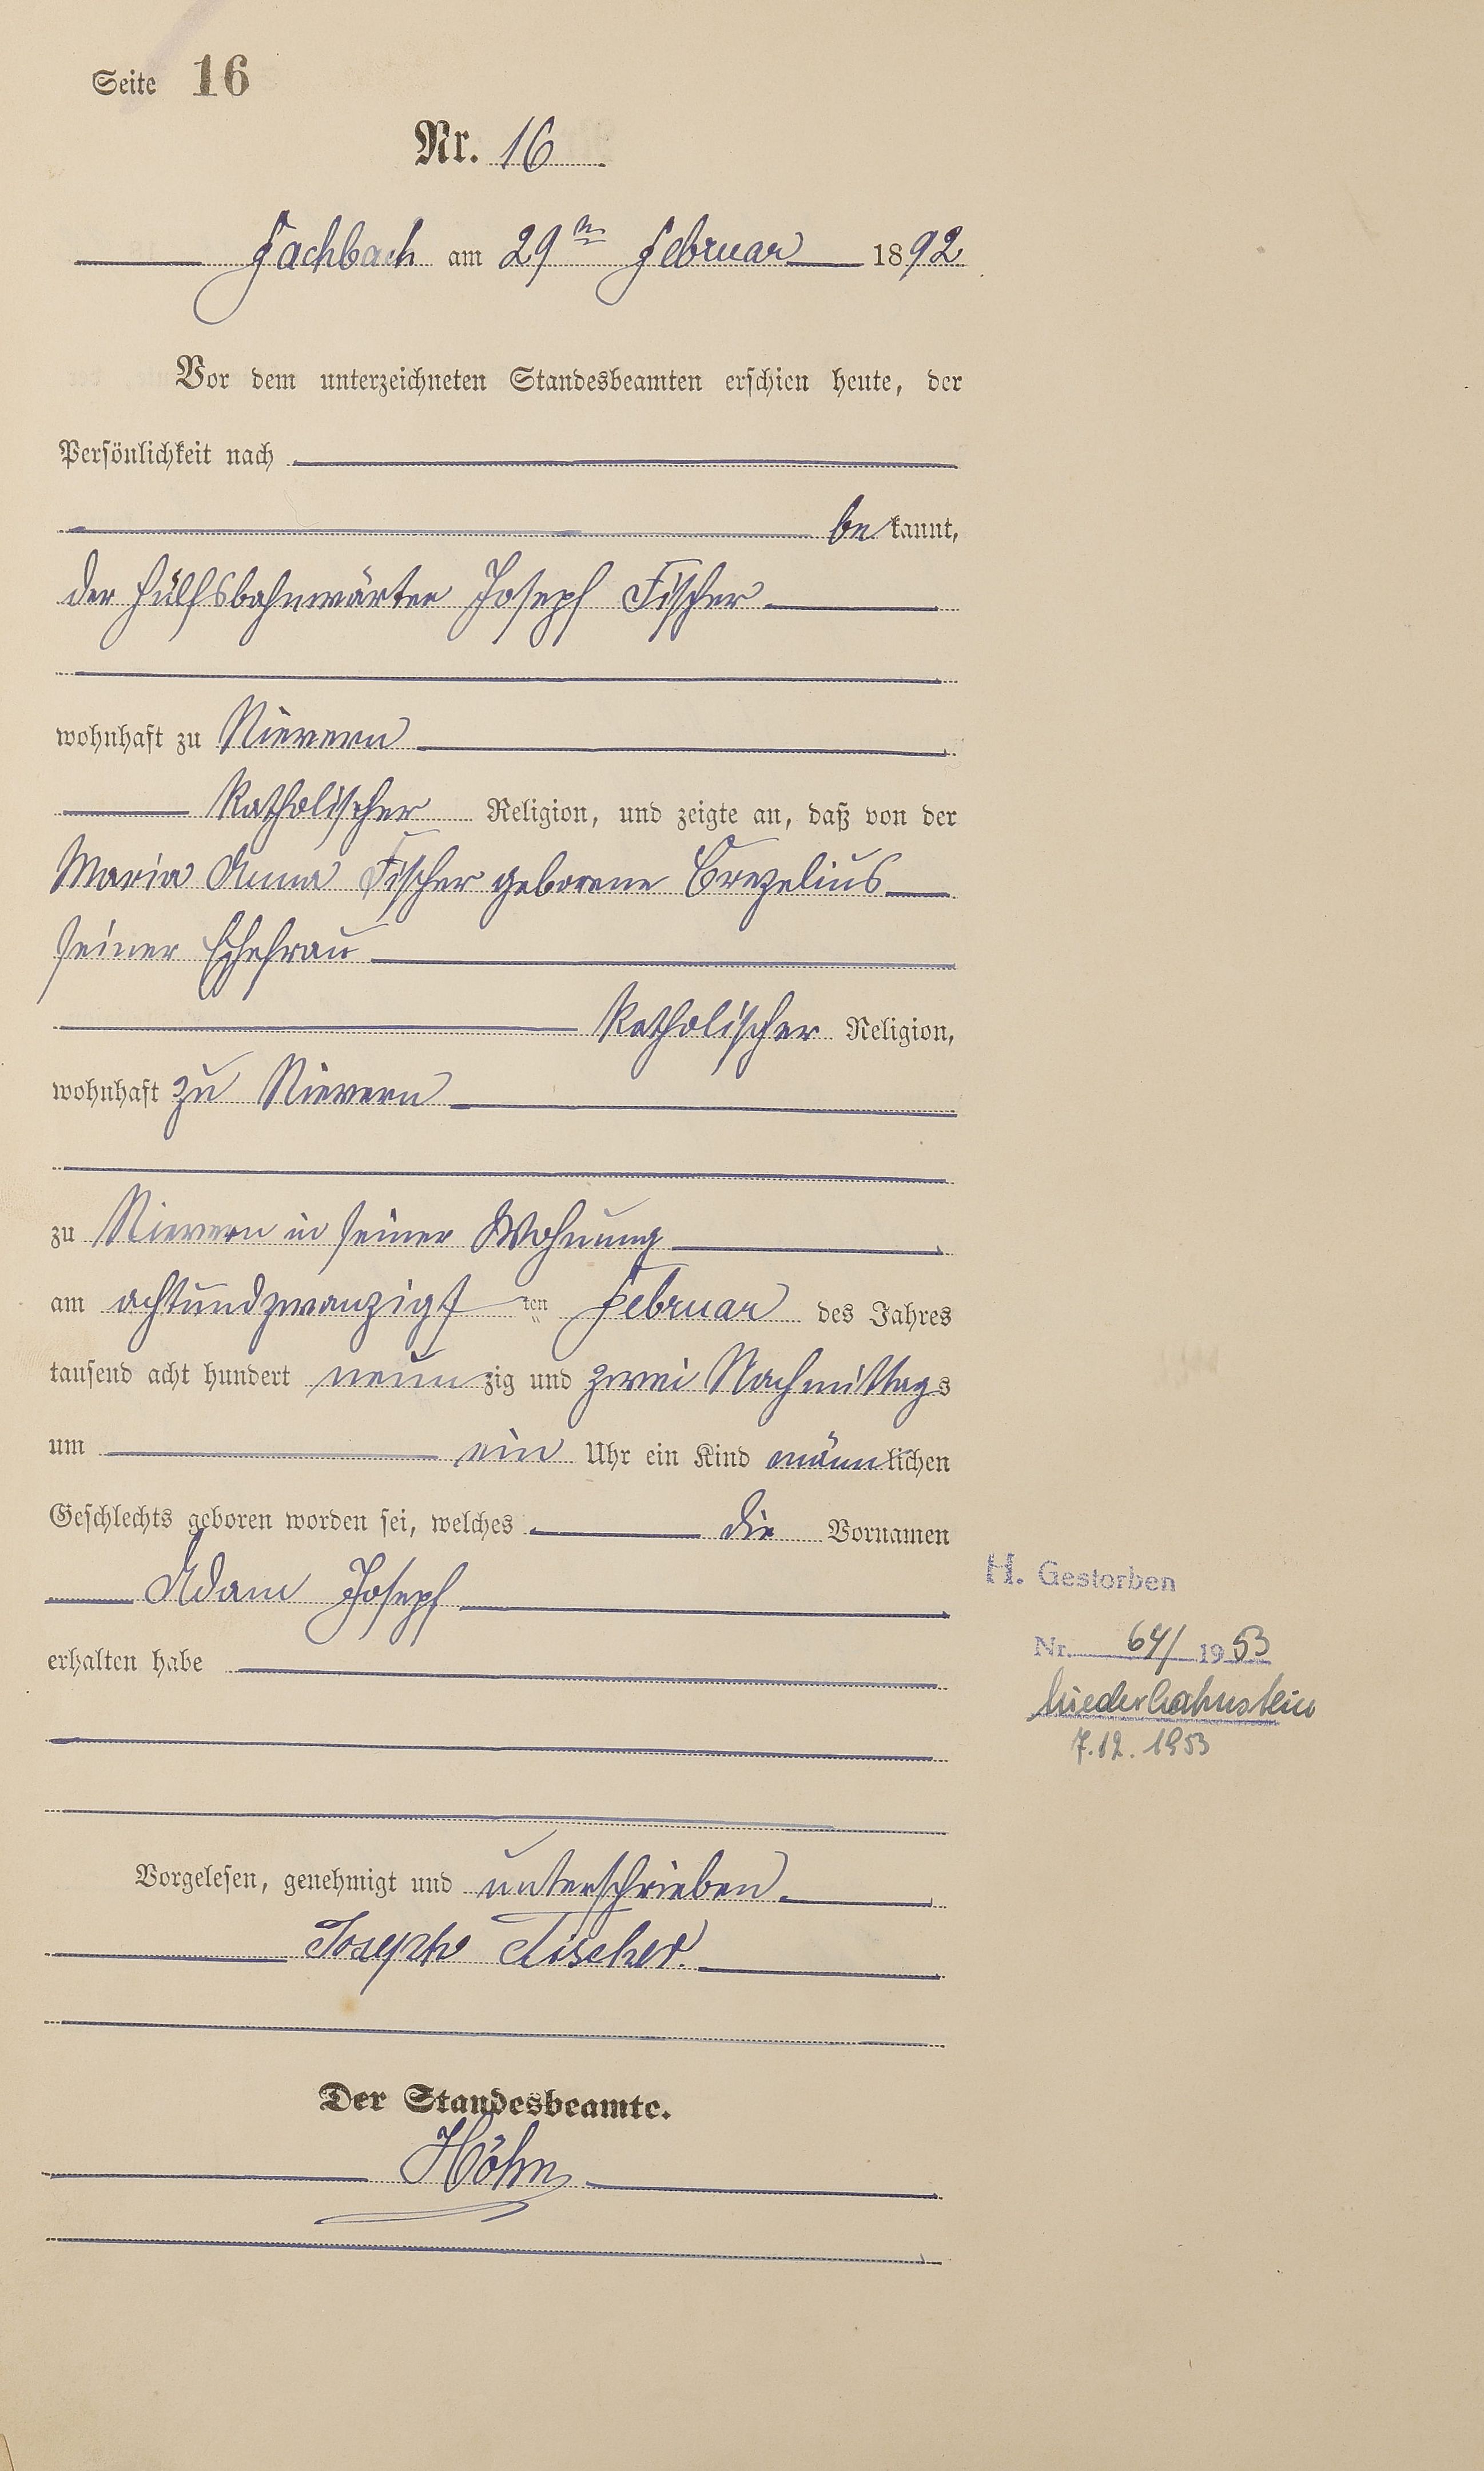 Seite 16
Nr. 16
Fachbach am 29ten Februar 1892
Vor dem unterzeichneten Standesbeamten erschien heute, der
Persönlichkeit nach
bekannt,
der Hülfsbahnwärter Joseph Fischer
wohnhaft zu Nievern
katholischer Religion, und zeigte an, daß von der
Maria Anna Fischer geborene
seiner Ehefrau
katholischer Religion,
wohnhaft zu Nievern
zu Nievern in seiner Wohnung
am achtundzwanzigsten Februar des Jahres
tausend acht hundert neunzig und zwei Nachmittags
um ein Uhr ein Kind männlichen
Geschlechts geboren worden sei, welches die Vornamen
Adam Joseph
erhalten habe
Vorgelesen, genehmigt und unterschrieben.
Joseph Fischer.
Der Standesbeamte.
Höhn
H. Gestorben
Nr. 64/1953
Niederlahnstein
7.12.1953